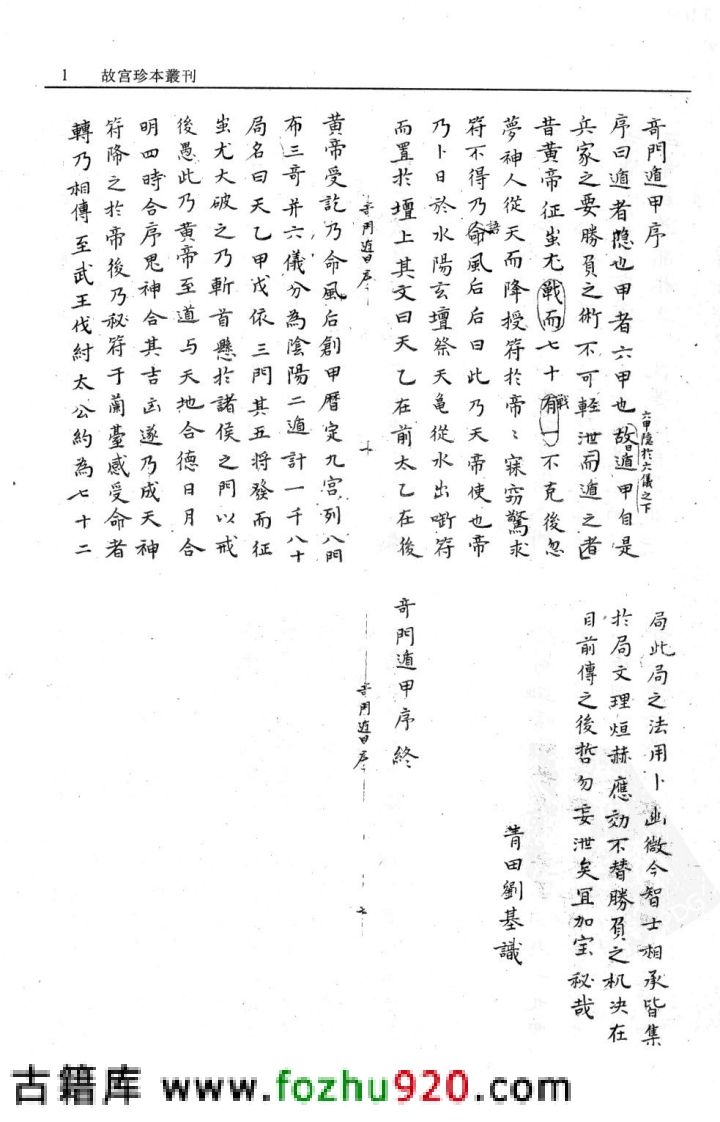 1 故宫珍本叢刊
奇門遁甲序
序曰遁者隐也甲者六甲也故遁甲自是
六甲隐於六儀之下
曰
兵家之要勝負之術不可輕泄而遁之者
昔黄帝征蚩尤戰而七十有一不克後忽
戰
夢神人從天而降授符於帝〻寐窃驚求
符不得乃命風后后曰此乃天帝使也帝
語
乃卜日於水陽玄壇祭天亀從水出啣符
而置於壇上其文曰天乙在前太乙在後
奇門遁甲序
黄帝受訖乃命風后創甲曆定九宫列八門
布三奇并六儀分為陰陽二遁計一千八十
局名曰天乙甲戊依三門其五将發而征
蚩尤大破之乃斬首懸於諸侯之門以戒
後愚此乃黄帝至道与天地合德日月合
明四時合序鬼神合其吉凶遂乃成天神
符降之於帝後乃秘符于蘭臺感受命者
轉乃相傳至武王伐紂太公約為七十二
局此局之法用卜幽微今智士相承皆集
於局文理烜赫應効不替勝負之机决在
目前傳之後哲勿妄泄矣冝加宝秘哉
青田劉基識
奇門遁甲序終
奇門遁甲序
古籍库 www.fozhu920.com